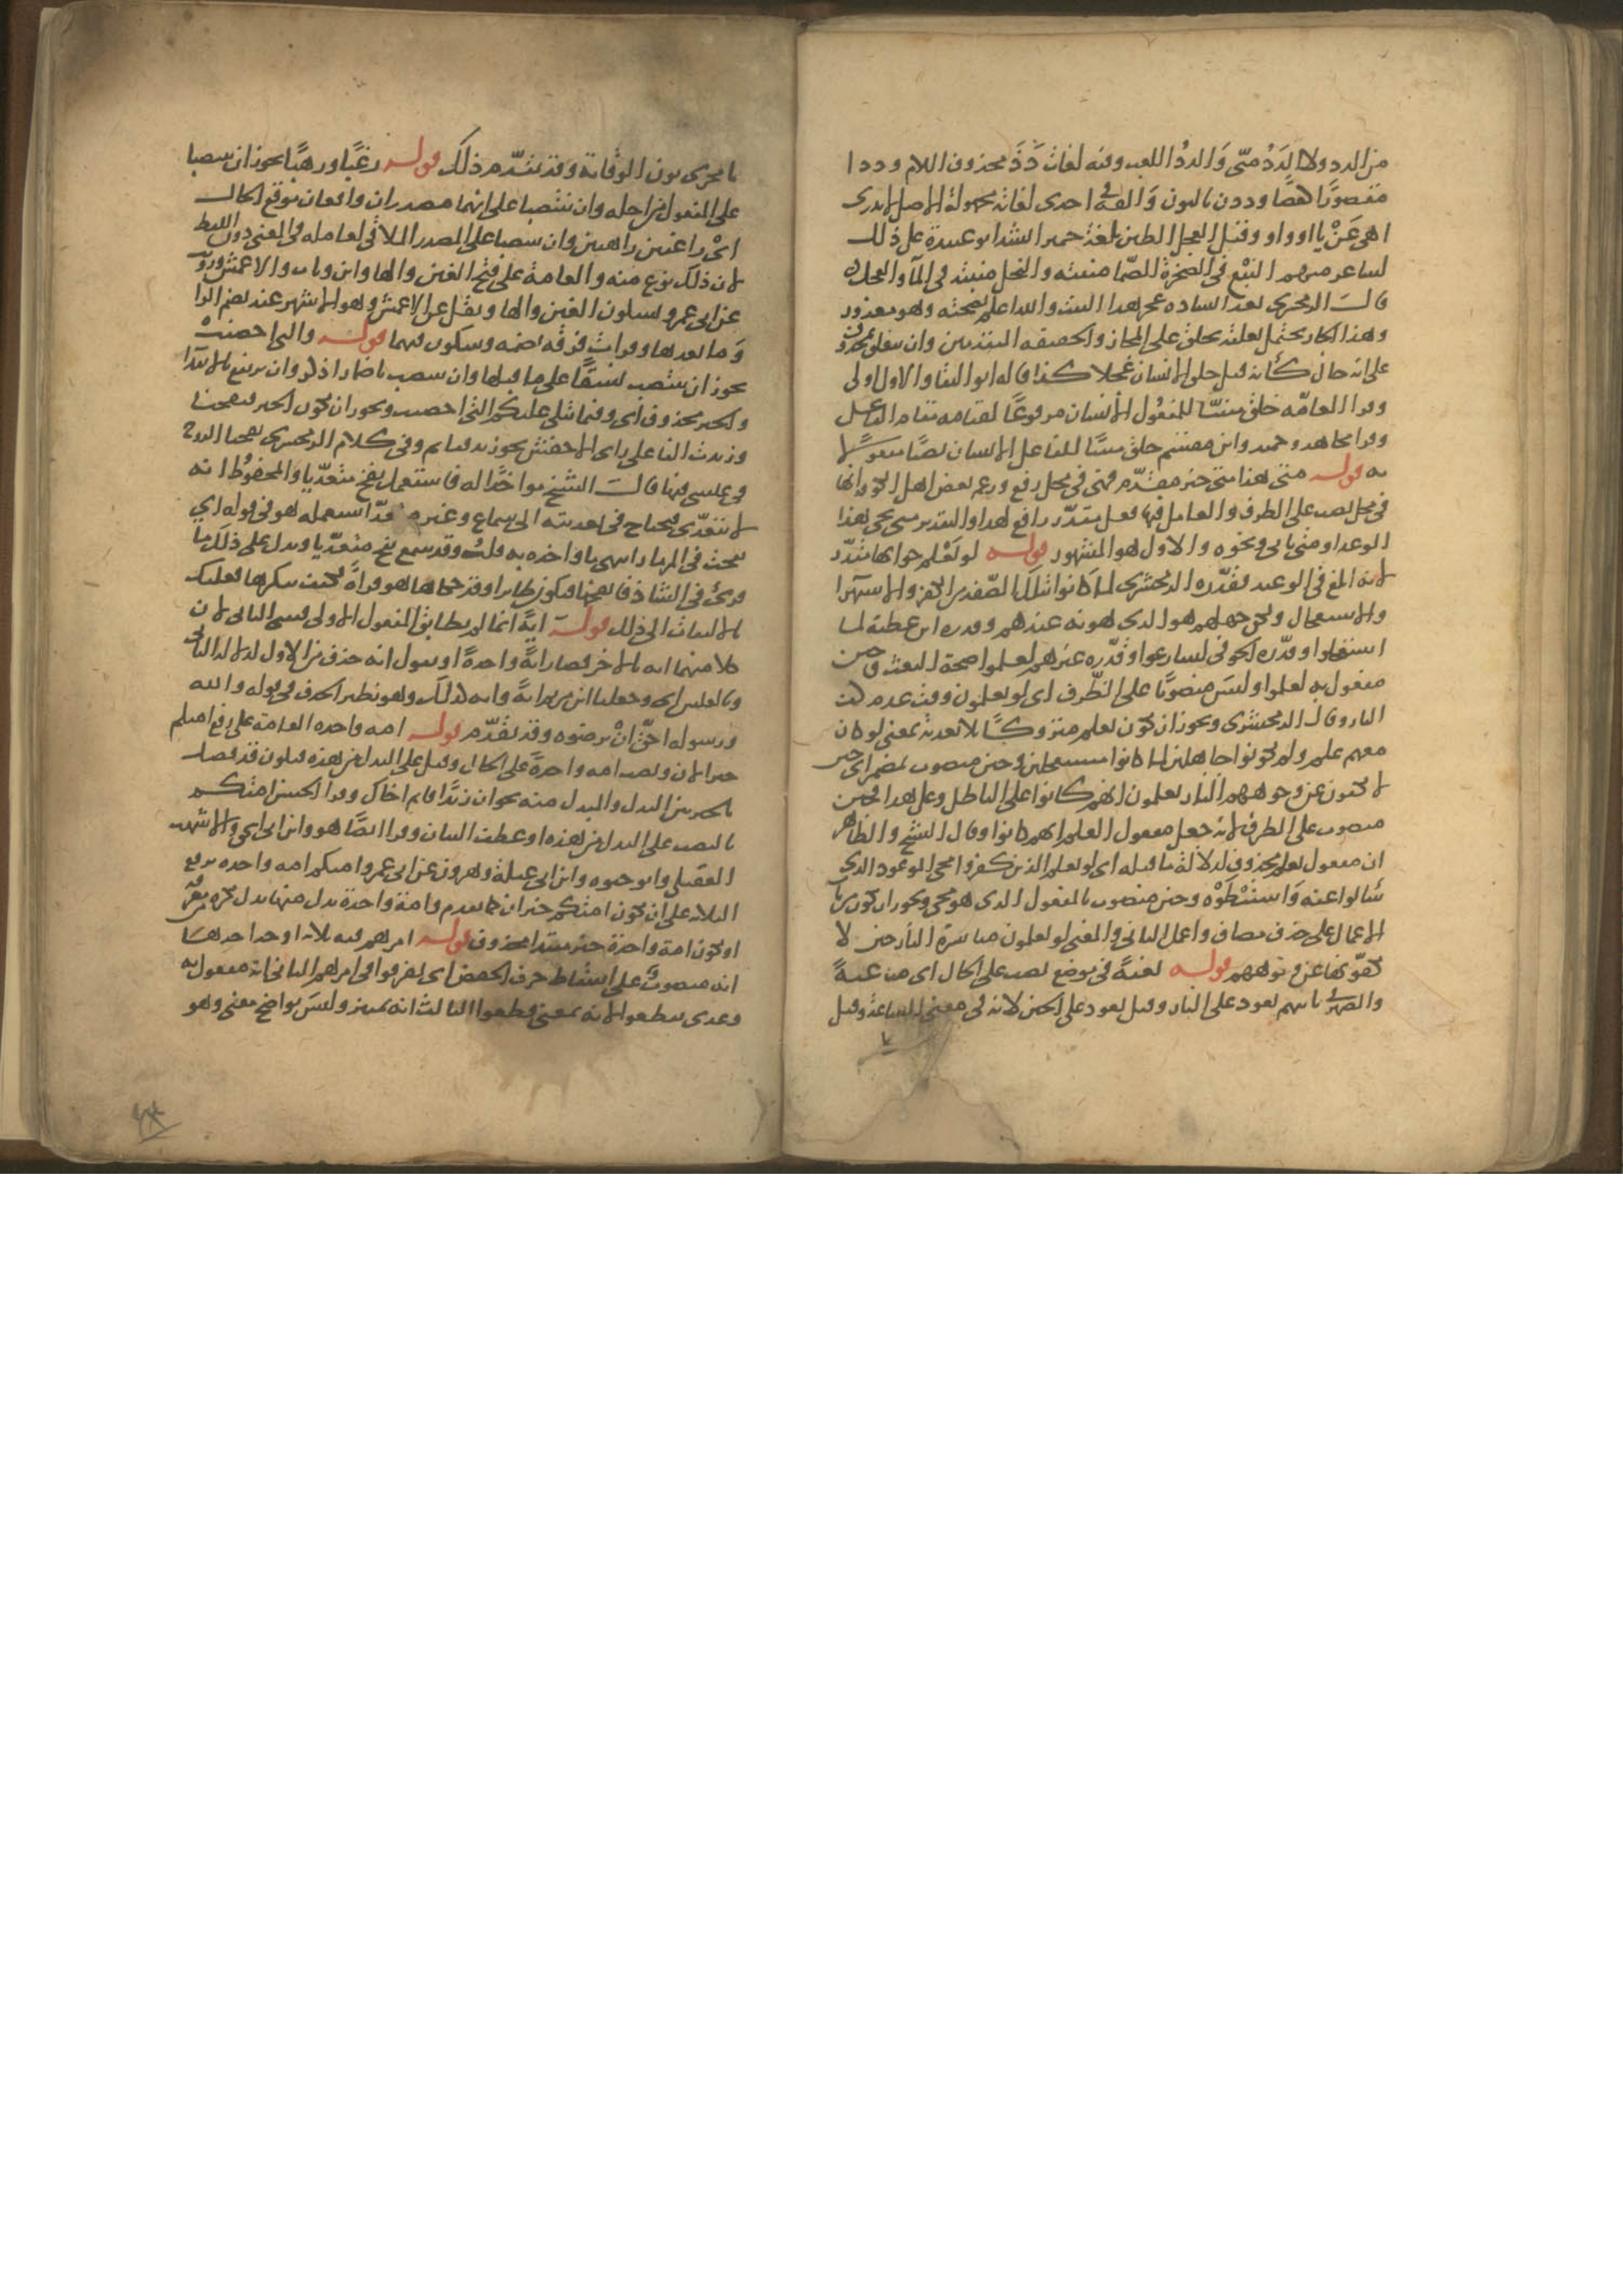 من الدد ولا الدد منى والدد اللعب وفيه لغات دد محذوف اللام وددا
مقصورا كعصا وددن بالنون والفه في احدى لغاته مجهولة الاصل لا ندرى
اهى عن ياء او واو وقيل العجل الطين بلغة حمير انشد ابو عبيدة على ذلك
لشاعر منهم النبع في الصخرة الصما منبته والنخل منبته في الماء والعجل
قال الزمخشرى بعد انشاده عجز هذا البيت والله اعلم بصحته وهو معذور
وهذا الجار يحتمل تعلقه بخلق على المجاز والحقيقه المتقدمين وان يتعلق بمحذوف
على انه حال كأنه قيل خلق الانسان عجلا كذا قاله ابو البقا والاول اولى
وقرا العامه خلق مبنيا للمفعول الانسان مرفوعا لقيامه مقام الفاعل
وقرا مجاهد وحميد وابن مقسم خلق مبنيا للفاعل الانسان نصبا مفعولا
به قوله متى هذا متى خبر مقدم فهى في محل رفع وزعم بعض اهل الكوفة انها
في محل نصب على الظرف والعامل فيها فعل مقدر رافع لهذا والتقدير متى يجى هذا
الوعد او متى ياتى ونحوه والاول هو المشهور قوله لو يعلم جوابها مقدر
لانه ابلغ في الوعيد فقدره الزمخشرى لما كانوا بتلك الصفه من الكفر والاستهزا
والاستعجال ولكن جهلهم هو الذى هونه عندهم وقدره ابن عطية لما
استعجلوا وقدره الحوفى لسارعوا وقدره غيرهم لعلموا صحة البعث وحين
مفعول به لعلموا وليس منصوبا على الظرف اى لو يعلمون وقت عدم كف
النار وقال الزمخشرى ويجوز ان يكون يعلم متروكا بلا تعدية بمعنى لو كان
معهم علم ولم يكونوا جاهلين لما كانوا مستعجلين وحين منصوب بمضمر اى حين
لا يكفون عن وجوههم النار يعلمون انهم كانوا على الباطل وعلى هذا فحين
منصوب على الظرف لانه جعل مفعول العلم انهم كانوا وقال الشيخ والظاهر
ان مفعول يعلم محذوف لدلالة ما قبله اى لو يعلم الذين كفروا مجى الموعود الذى
سألوا عنه واستبطؤه وحين منصوب بالمفعول الذى هو مجى ويجوز ان يكون من باب
الاعمال على حذف مضاف واعمل الثانى والمعنى لو يعلمون مباشرة النار حين لا
يكفونها عن وجوههم قوله بغتة في موضع نصب على الحال اى مباغتة
والضمير في تاتيهم يعود على النار وقيل يعود على الحين لانه في معنى الساعة وقيل
ما يجرى نون الوقاية وقد تقدم ذلك قوله رغبا ورهبا يجوز ان ينتصبا
على المفعول من اجله وان ينتصبا على انهما مصدران واقعان موقع الحال
اى راغبين راهبين وان ينتصبا على المصدر الملاقى لعامله في المعنى دون اللفظ
لان ذلك نوع منه والعامة على فتح الغين والهاء وابن وثاب والاعمش ورويت
عن ابى عمرو بسكون الغين والهاء ونقل عن الاعمش وهو الاشهر عنه بضم الرا
وما بعدها وقرات فرقه بضمه وسكون فيهما قوله والتى احصنت
يجوز ان ينتصب نسقا على ما قبلها وان ينتصب باضمار اذكر وان يرتفع بالابتدا
والخبر محذوف اى وفيما يتلى عليكم التى احصنت ويجوز ان يكون الخبر فنفخنا
وزيدت الفا على راى الاخفش نحو زيد فقايم وفي كلام الزمخشرى نفخنا الروح
في عيسى فيها قال الشيخ مواخذا له فاستعمل نفخ متعديا والمحفوظ انه
لا يتعدى فيحتاج في تعديته الى سماع وغير متعد استعمله هو في قوله اى
نفخت في المزمار انتهى ما واخذه به قلت وقد سمع نفخ متعديا ويدل على ذلك ما
قرئ في الشاذ فانفخها فيكون طايرا وقد حكاها هو قراءة فكيف ينكرها فعليك
بالالتفات الى ذلك قوله اية انما لم يطابق المفعول الاول فيثنى الثانى لان
كلا منهما اية بالاخر فصارا اية واحدة او نقول انه حذف من الاول لدلالة الثانى
وبالعكس اى وجعلنا ابن مريم اية وامه كذلك وهو نظير الحذف في قوله والله
ورسوله احق ان يرضوه وقد تقدم قوله امه واحده العامة على رفع امتكم
خبرا لان ونصب امه واحدة على الحال وقيل على البدل من هذه فيكون قد فصل
بالخبر بين البدل والمبدل منه نحو ان زيدا قايم اخاك وقرا الحسن امتكم
بالنصب على البدل من هذه او عطف البيان وقرا ايضا هو وابن ابى اسحق والاشهب
العقيلى وابو حيوه وابن ابى عبلة وهرون عن ابى عمرو امتكم امه واحده برفع
الثلاثه على ان يكون امتكم خبر ان كما تقدم وامة واحدة بدل منها بدل نكره من معرفه
او يكون امة واحدة خبر مبتدا محذوف قوله امرهم فيه ثلاثه اوجه احدها
انه منصوب على اسقاط حرف الخفض اى تفرقوا في امرهم الثانى انه مفعول به
وعدى تقطعوا لانه بمعنى قطعوا الثالث انه تمييز وليس بواضح معنى وهو